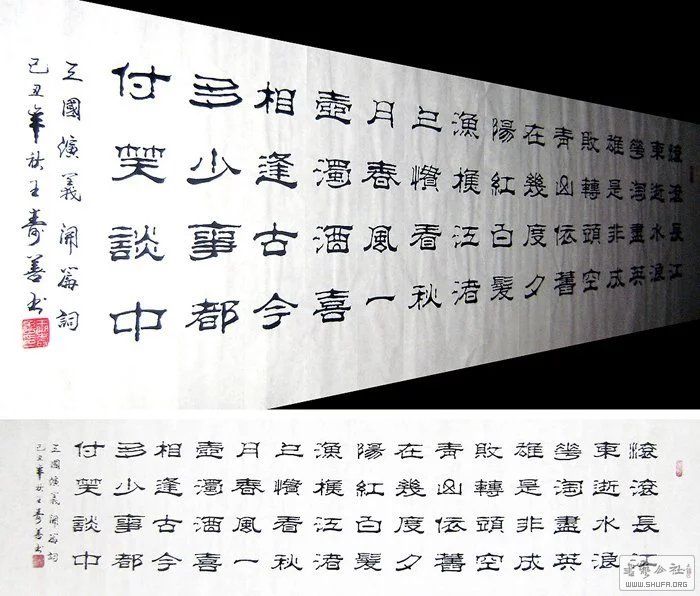 滾滾長江
東逝水浪
華淘盡英
雄是非成
敗轉頭空
青山依舊
在幾度夕
陽紅白髮
漁樵江渚
上慣看秋
月春風一
壺濁酒喜
相逢古今
多少事都
付笑談中
三國演義開篇詞
己丑年秋王壽善书
滾滾長江
東逝水浪
華淘盡英
雄是非成
敗轉頭空
青山依舊
在幾度夕
陽紅白髮
漁樵江渚
上慣看秋
月春風一
壺濁酒喜
相逢古今
多少事都
付笑談中
三國演義開篇詞
己丑年秋王壽善书
WWW.SHUFA.ORG